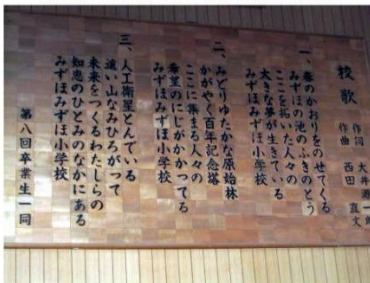 校歌
作詞 大井源一郎
作曲 西田直文
一、春のかおりをのせてくる
みずほの池のふきのとう
ここを拓いた人々の
大きな夢が生きている
みずほみずほ小学校
二、みどりゆたかな原始林
かがやく百年記念塔
ここに集まる人々の
希望のにじがかかってる
みずほみずほ小学校
三、人工衛星とんでいる
遠い山なみひろがって
未来をつくるわたしらの
知恵のひとみのなかにある
みずほみずほ小学校
第八回卒業生一同